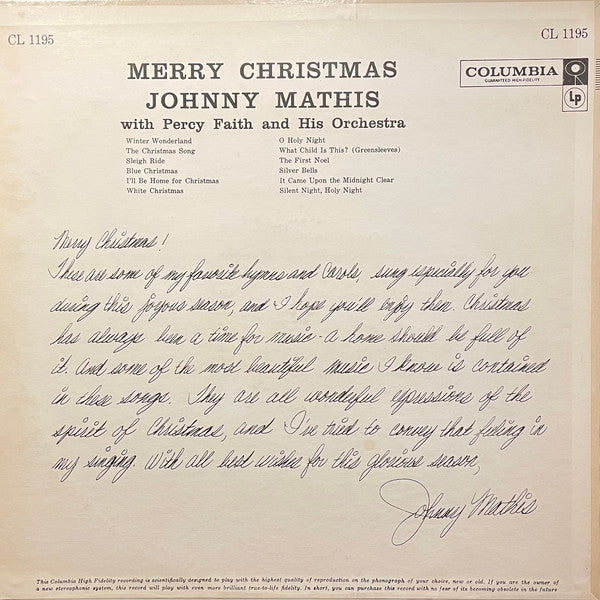 CL 1195
CL 1195
MERRY CHRISTMAS
JOHNNY MATHIS
with Percy Faith and His Orchestra
COLUMBIA
GUARANTEED HIGH-FIDELITY
Lp
Winter Wonderland
The Christmas Song
Sleigh Ride
Blue Christmas
I'll Be Home for Christmas
White Christmas
O Holy Night
What Child Is This? (Greensleeves)
The First Noel
Silver Bells
It Came Upon the Midnight Clear
Silent Night, Holy Night
Merry Christmas!
These are some of my favorite hymns and Carols, sung especially for you
during this joyous season, and I hope you'll enjoy them. Christmas
has always been a time for music - a home should be full of
it. And some of the most beautiful music I know is contained
in these songs. They are all wonderful expressions of the
spirit of Christmas, and I've tried to convey that feeling in
my singing. With all best wishes for this glorious season,
Johnny Mathis
This Columbia High Fidelity recording is scientifically designed to play with the highest quality of reproduction on the phonograph of your choice, new or old. If you are the owner of
a new stereophonic system, this record will play with even more brilliant true-to-life fidelity. In short, you can purchase this record with no fear of its becoming obsolete in the future